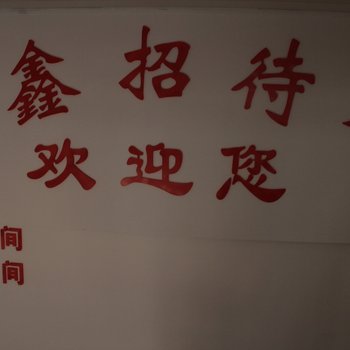 鑫招待
欢迎您
间
间